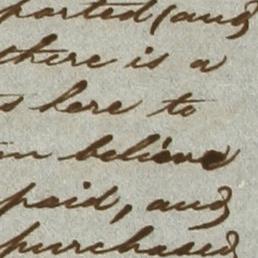 ported (and
there is a
s here to
m believe
paid, and
purchased